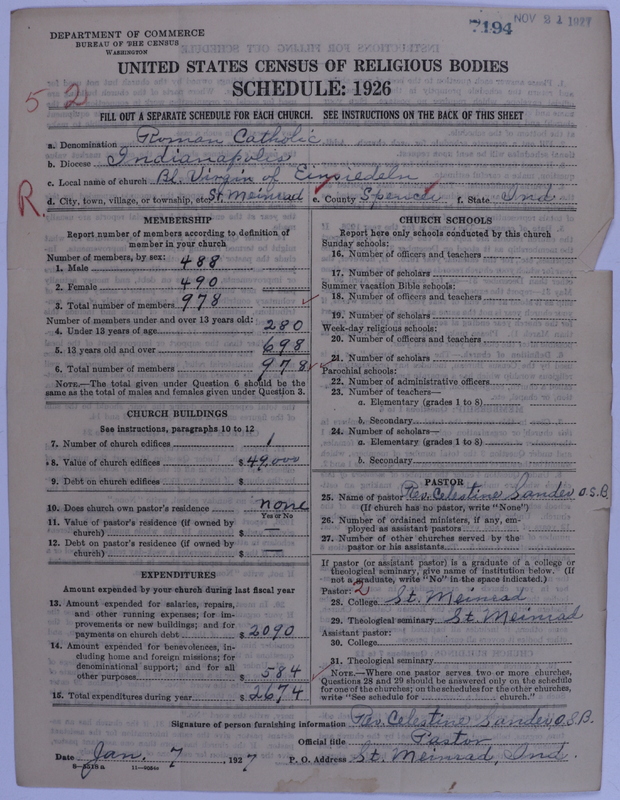 7194 NOV 21 1927
DEPARTMENT OF COMMERCE
BUREAU OF THE CENSUS
WASHINGTON
UNITED STATES CENSUS OF RELIGIOUS BODIES
SCHEDULE: 1926
52
FILL OUT A SEPARATE SCHEDULE FOR EACH CHURCH. SEE INSTRUCTIONS ON THE BACK OF THIS SHEET
a. Denomination Roman Catholic
b. Diocese Indianapolis
c. Local name of church Bl. Virgin of Einsiedeln
R.
d. City, town, village, or township, etc. St. Meinrad e. County Spencer f. State Ind
MEMBERSHIP
Report number of members according to definition of
member in your church
Number of members, by sex:
1. Male 488
2. Female 490
3. Total number of members 978
Number of members under and over 13 years old:
4. Under 13 years of age 280
5. 13 years old and over 698
6. Total number of members 978
NOTE.—The total given under Question 6 should be the
same as the total of males and females given under Question 3.
CHURCH BUILDINGS
See instructions, paragraphs 10 to 12
7. Number of church edifices 1
8. Value of church edifices $ 49,000
9. Debt on church edifices $
10. Does church own pastor's residence none
Yes or No
11. Value of pastor's residence (if owned by
church) $ —
12. Debt on pastor's residence (if owned by
church) $ —
EXPENDITURES
Amount expended by your church during last fiscal year
13. Amount expended for salaries, repairs,
and other running expenses; for im-
provements or new buildings; and for
payments on church debt $ 2090
14. Amount expended for benevolences, in-
cluding home and foreign missions; for
denominational support; and for all
other purposes $ 584
15. Total expenditures during year $ 2674
CHURCH SCHOOLS
Report here only schools conducted by this church
Sunday schools:
16. Number of officers and teachers
17. Number of scholars
Summer vacation Bible schools:
18. Number of officers and teachers
19. Number of scholars
Week-day religious schools:
20. Number of officers and teachers
21. Number of scholars
Parochial schools:
22. Number of administrative officers
23. Number of teachers—
a. Elementary (grades 1 to 8)
b. Secondary
24. Number of scholars—
a. Elementary (grades 1 to 8)
b. Secondary
PASTOR
25. Name of pastor Rev. Celestine Sander O.S.B.
(If church has no pastor, write "None")
26. Number of ordained ministers, if any, em-
ployed as assistant pastors
27. Number of other churches served by the
pastor or his assistants
If pastor (or assistant pastor) is a graduate of a college or
theological seminary, give name of institution below. (If
not a graduate, write "No" in the space indicated.)
Pastor: 2
28. College St. Meinrad
29. Theological seminary St. Meinrad
Assistant pastor:
30. College
31. Theological seminary
NOTE.—Where one pastor serves two or more churches,
Questions 28 and 29 should be answered only on the schedule
for one of the churches; on the schedules for the other churches,
write "See schedule for ______ church."
Signature of person furnishing information Rev. Celestine Sander O.S.B.
Official title Pastor
Date Jan. 7, 1927 P. O. Address St. Meinrad, Ind.